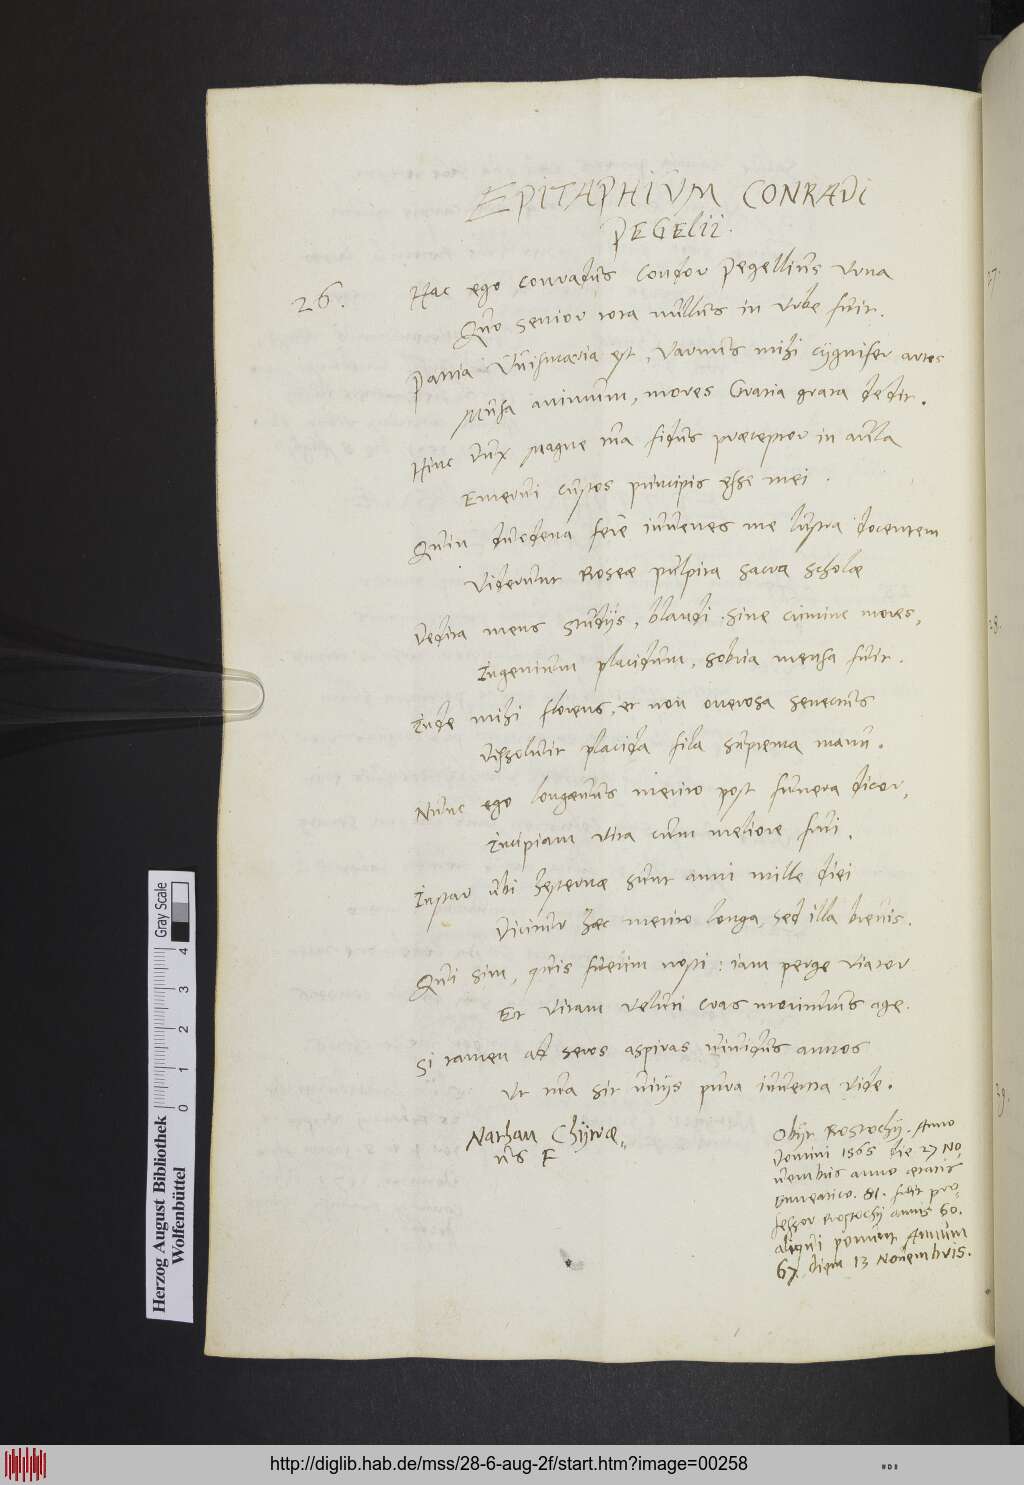 EPITAPHIUM CONRADI
PEGElii.
26.
Hac ego conradus condor Pegellius Urna
Quo senior tota nullus in Urbe fuit.
Patria Vuismaria est, Varnus mihi cygnifer artes
Musa animum, mores Gratia grata dedit.
Hinc Dux Magne tua fidus præceptor in aula
Emerui custos principis esse mei.
Quin duodena fere iuuenes me lustra docentem
Viderunt Roseæ pulpita sacra scholæ
Dedita mens studijs, blandi sine crimine mores,
Ingenium placidum, sobria mensa fuit.
Inde mihi florens, et non onerosa senectus
Dissoluit placida fila suprema manu.
Nunc ego longæuus merito post funera dicor,
Incipiam vita cum meliore frui.
Instar ubi hesternæ sunt anni mille diei
Dicitur hæc merito longa, sed illa breuis.
Qui sim, quis fuerim nosti: iam perge viator
Et vitam veluti cras moriturus age.
Si tamen ad seros aspiras uiuidus annos
Ut tua sit uitijs pura iuuenta vide.
Nathan Chytræ„
us F
Obijt Rostochij. Anno
Domini 1565 die 27 No
uembris anno ætatis
81. fuit pro„
fessor Rostochij annis 60.
aliqui ponunt Annum
67. diem 13 Nouembris.
27.
28.
29.
Herzog August Bibliothek
Wolfenbüttel
0 1 2 3 4
Gray Scale
http://diglib.hab.de/mss/28-6-aug-2f/start.htm?image=00258